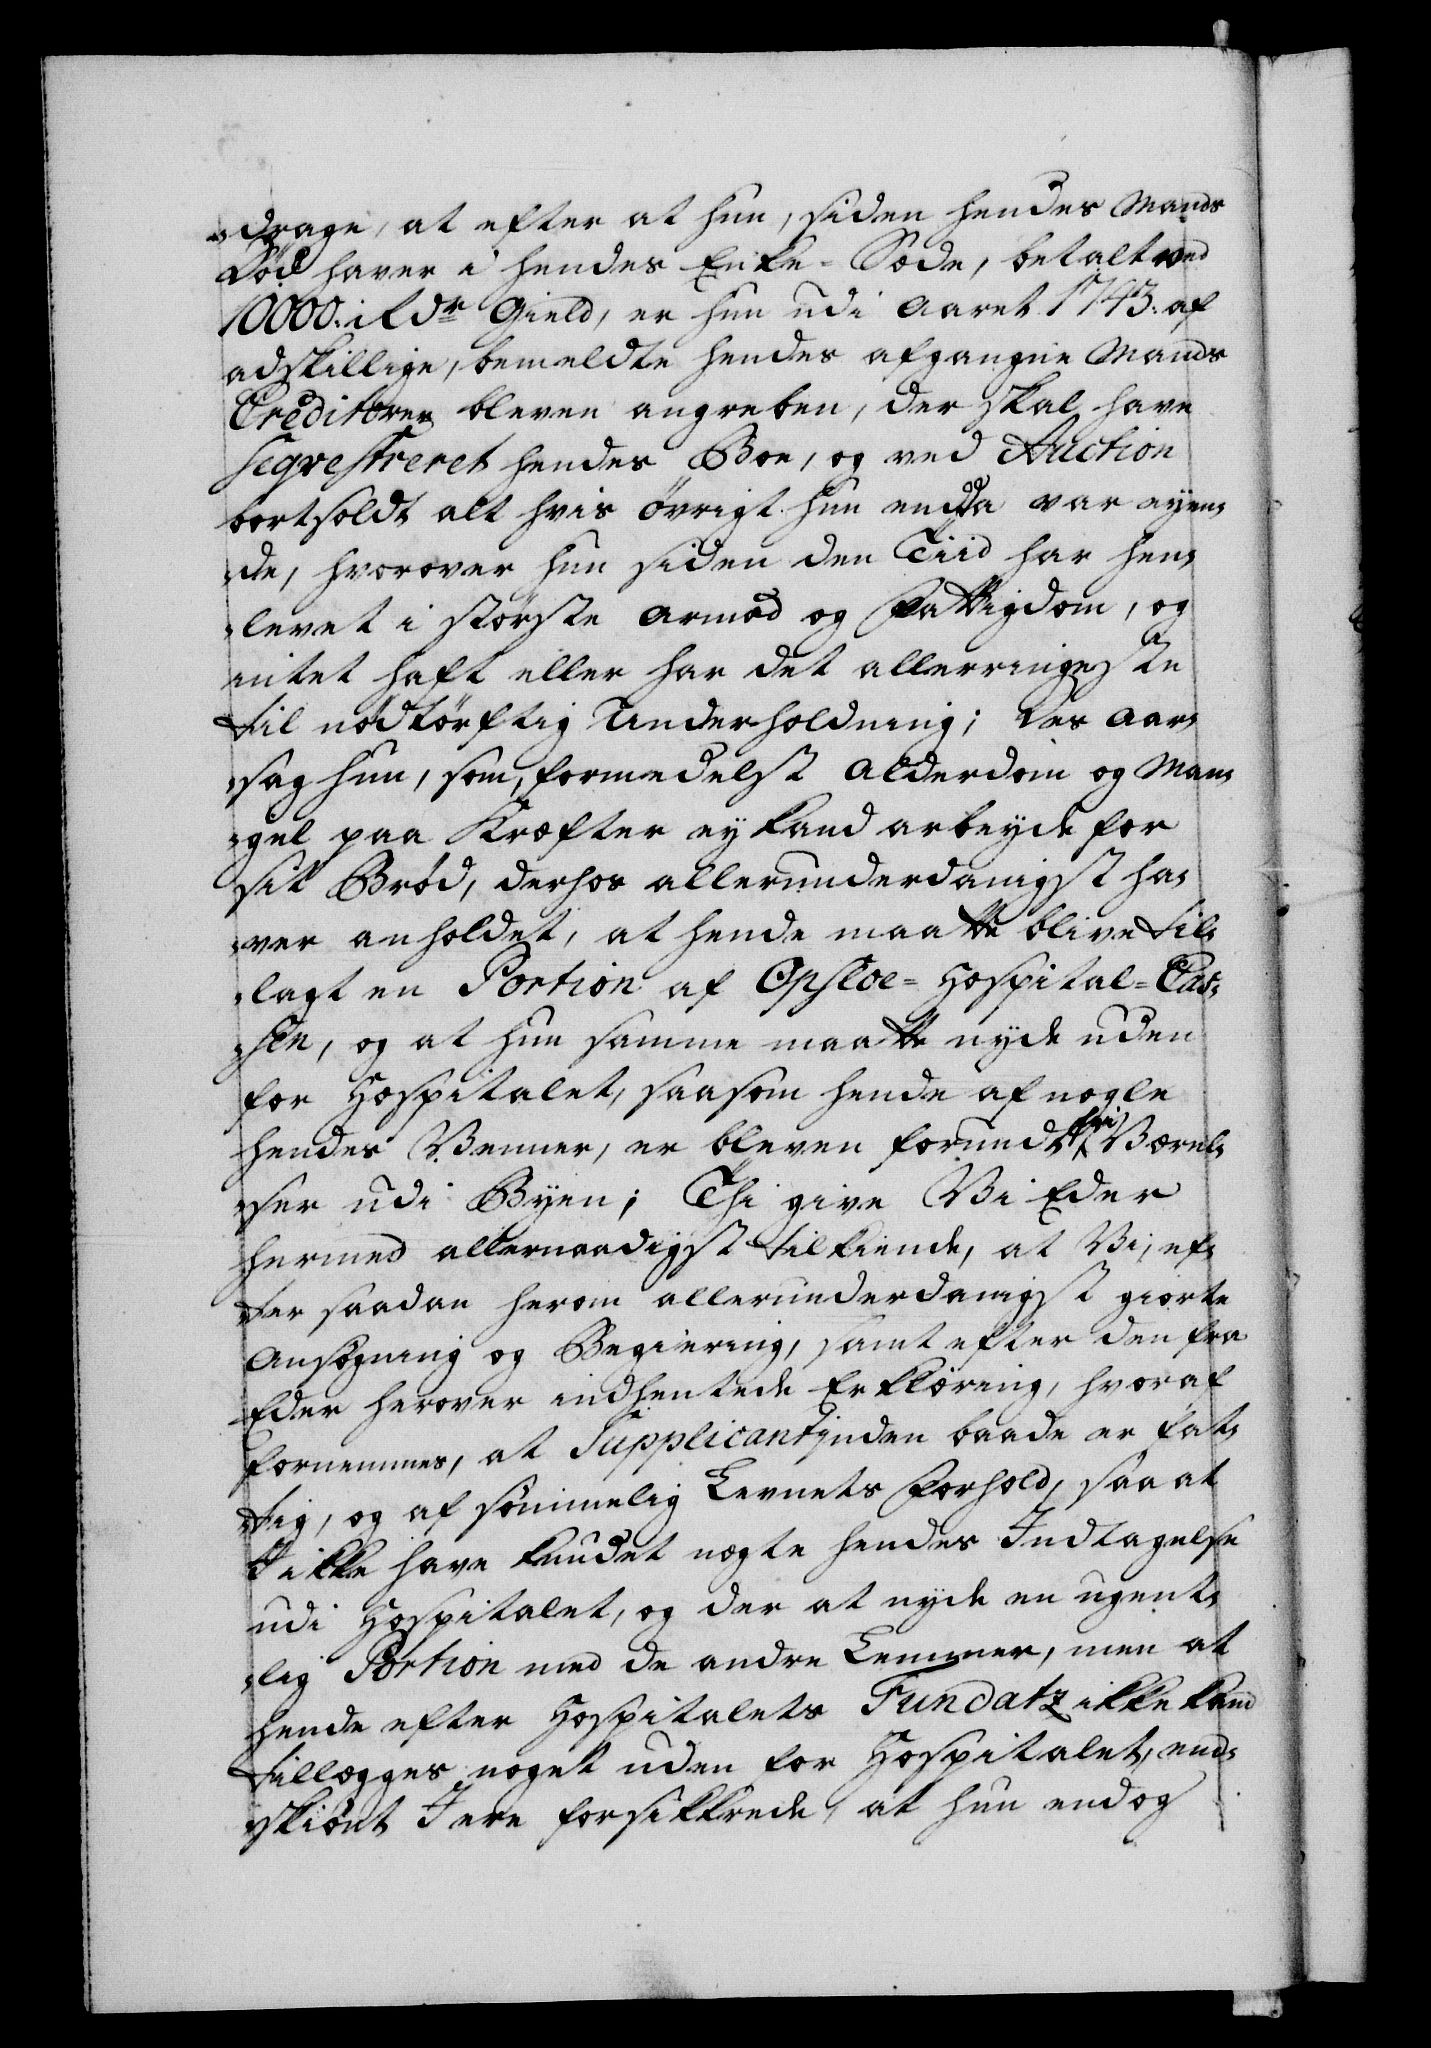 -drage, at efter at hun, siden hendes Mands
Død haver i hendes Enke-Sæde, betalt ved
10000. rldr Gield, er hun udi Aaret 1743. af
adskillige, bemeldte hendes afgangne Mands
Creditorer bleven angreben, der skal have
seqvestreret hendes Boe, og ved Auction
bortsoldt alt hvis övrigt hun endda var eyen-
-de, hvorover hun siden den Tiid har hen-
-levet i störste Armod og Fattigdom, og
intet haft eller har det allerringeste
til nödtörftig Underholdning; Des Aar-
-sag hun, som, formedelst Alderdom og Man-
-gel paa Kræfter ey kand arbeyde for
sit Bröd, derhos allerunderdanigst ha-
-ver anholdet, at hende maatte blive til-
-lagt en Portion af Opsloe-Hospital-Cas-
-sen, og at hun samme maatte nyde uden
for Hospitalet, saasom hende af nogle
hendes Venner, er bleven forundt fri Værel-
-ser udi Byen; Thi give Vi Eder
hermed allernaadigst tilkiende, at Vi, ef-
-ter saadan herom allerunderdanigst giorte
Ansögning og Begiering, samt efter den fra
Eder herover indhentede Erklæring, hvoraf
fornemmes, at Supplicantinden baade er fat-
-tig, og af sömmelig Levnets Forhold, saa at
I ikke have kundet nægte hendes Indtagelse
udi Hospitalet, og der at nyde en ugent-
-lig Portion med de andre Lemmer, men at
hende efter Hospitalets Fundatz ikke kand
tillægges noget uden for Hospitalet, end-
-skiönt I ere forsikkrede, at hun endog